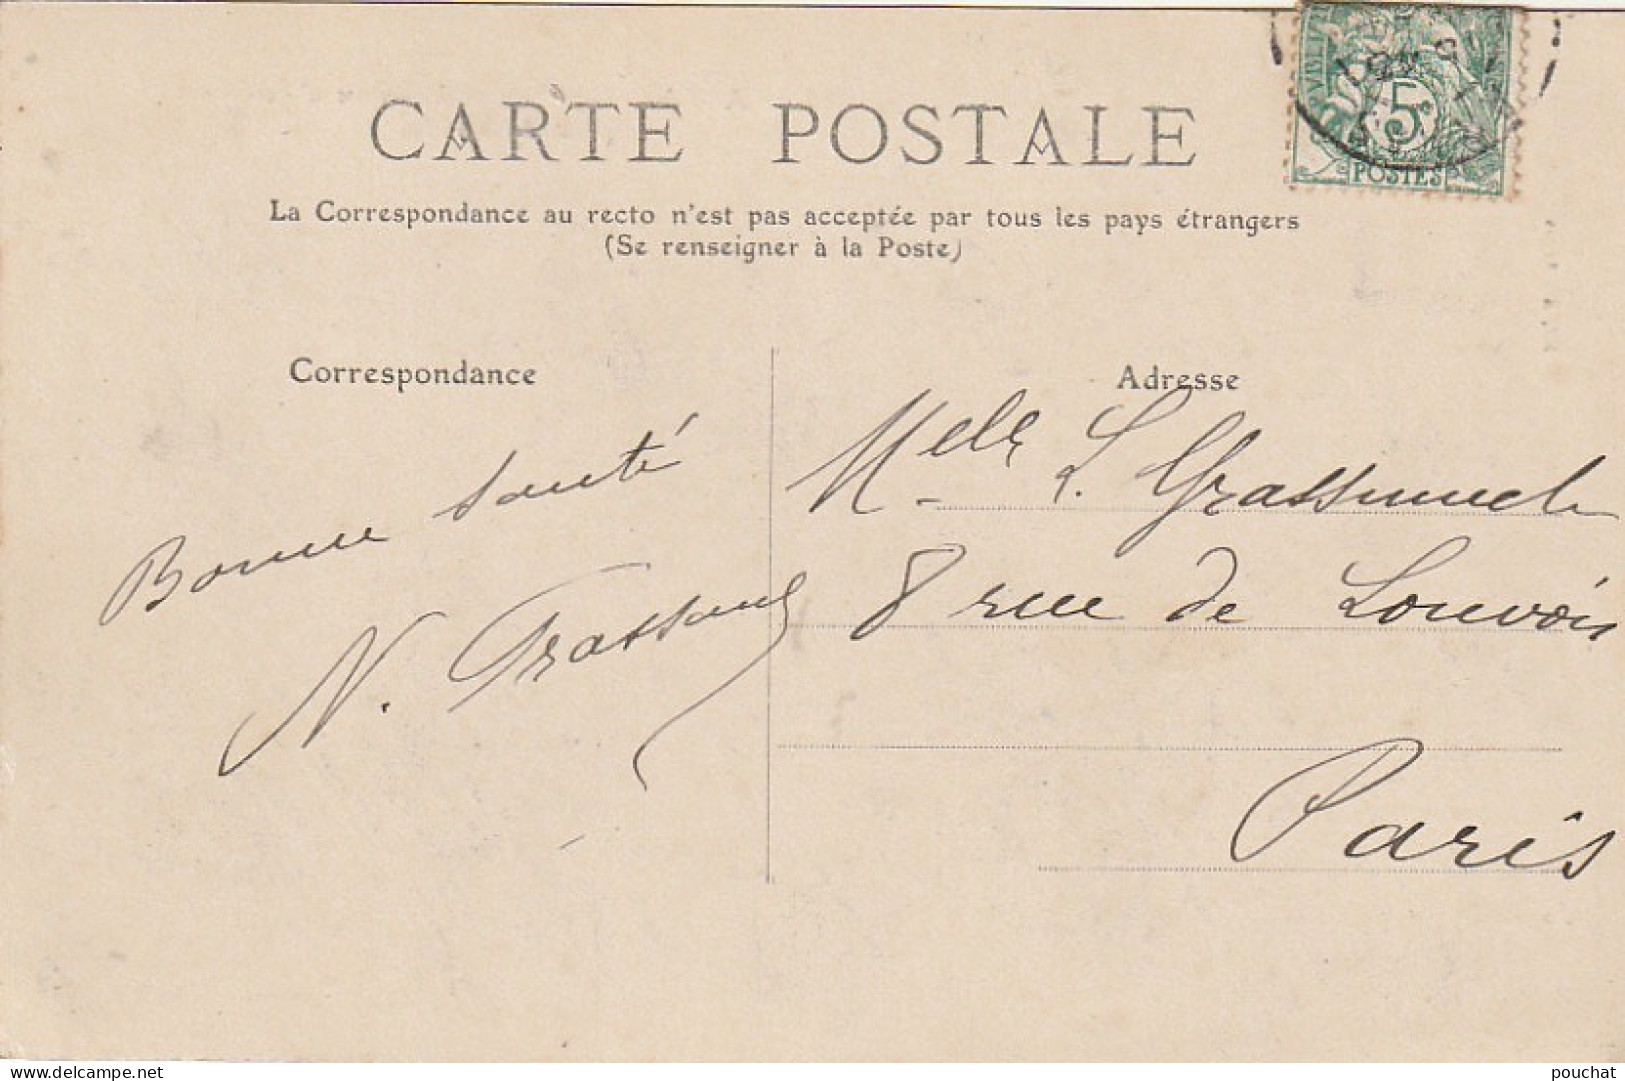 CARTE POSTALE
La Correspondance au recto n'est pas acceptée par tous les pays étrangers
(Se renseigner à la Poste)
Correspondance
Bonne santé
N.
Adresse
Melle L.
8 rue de Louvois
Paris
5
POSTES
www.delcampe.net
pouchat